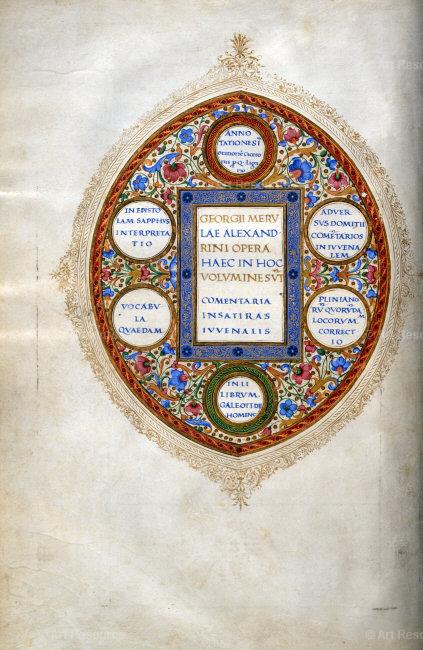 ANNO
TATIONES Ī
ORATIONĒ CICERO
NIS P. Q. LIGA
RIO
GEORGII MERV
LAE ALEXAND
RINI OPERA
HAEC IN HOC
VOLVMINE SVT
COMENTARIA
IN SATIRAS
IVVENALIS
IN EPISTO
LAM SAPPHVS
INTERPRETA
TIO
ADVER
SVS DOMITII
COMĒTARIOS
IN IVVENA
LEM
VOCABV
LA
QVAEDAM
PLINIANO
RV̄ QVORVDA
LOCORVM
CORRECT
IO
IN LI
LIBRVM
GALEOTI DE
HOMINE
© Art Resource